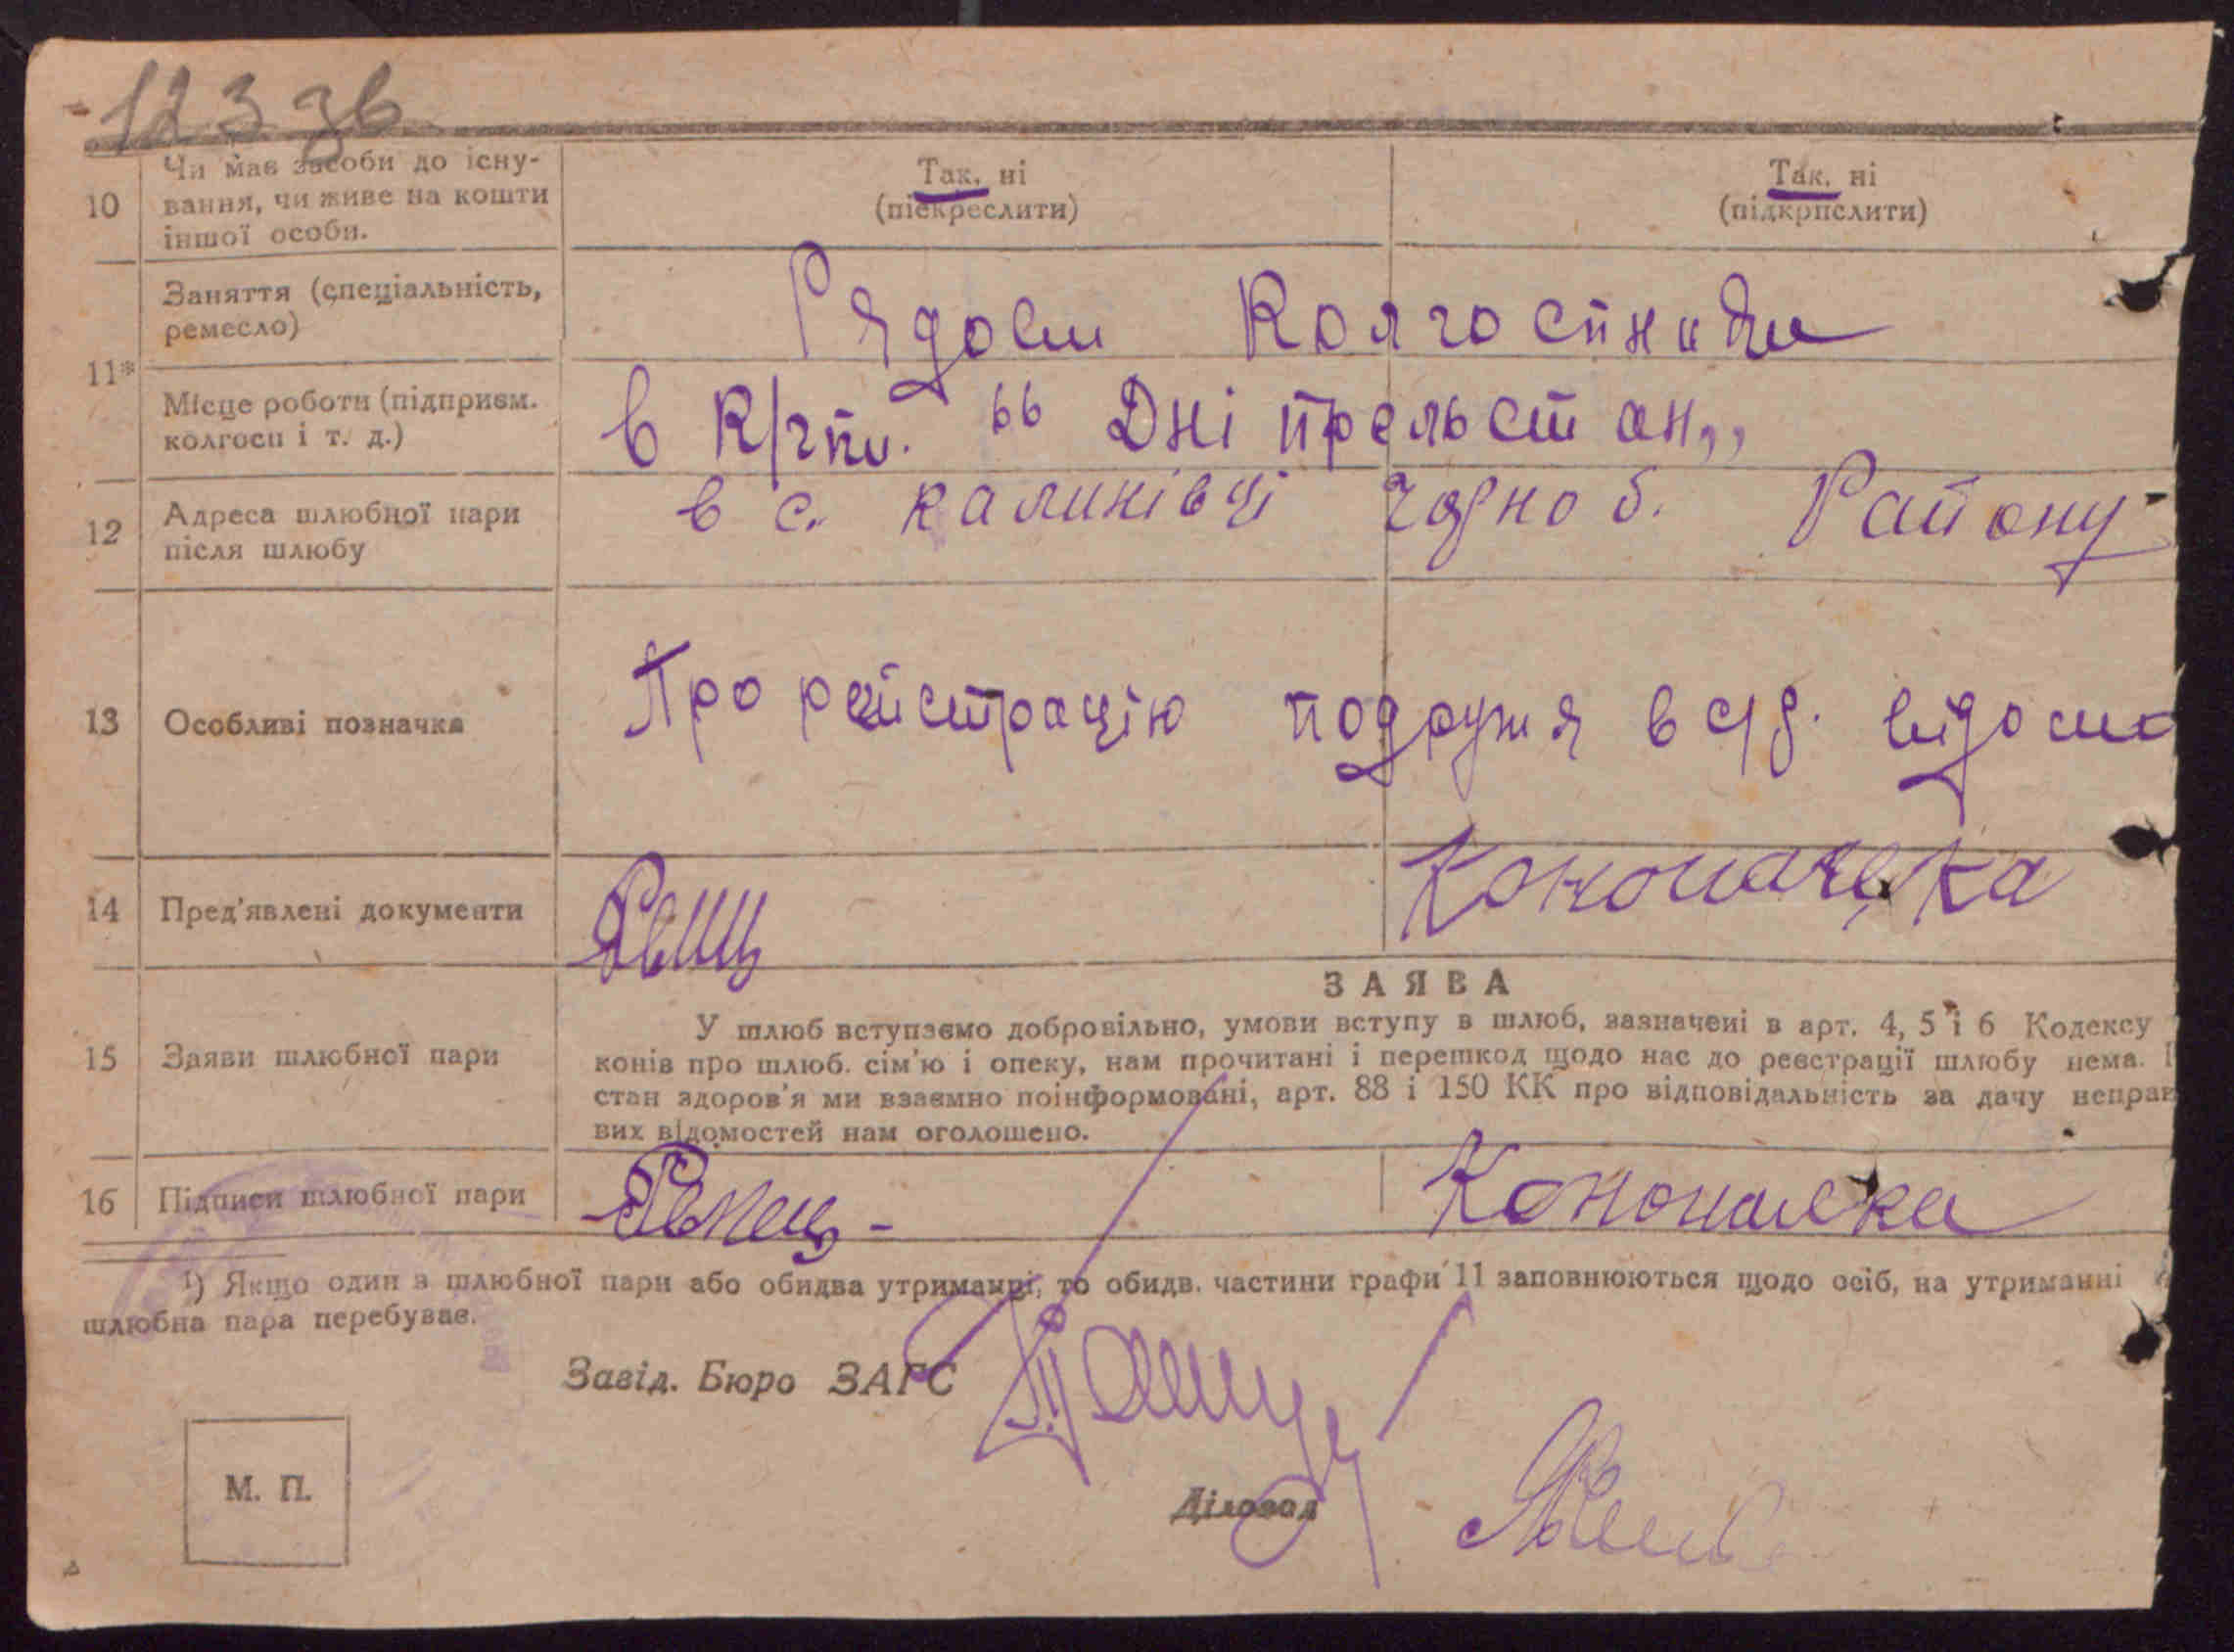 123 зв
10 Чи має засоби до існу-
вання, чи живе на кошти
іншої особи.
Так, ні
(піекреслити)
Так, ні
(підкрпслити)
11*
Заняття (спеціальність,
ремесло)
Рядові Колгоспники
Місце роботи (підприєм.
колгосп і т. д.)
в К/гпу. „Дніпрельстан„
12 Адреса шлюбної пари
після шлюбу
в с. Калинівці Чорноб. Району
13 Особливі позначка
Про рейстрацію подружя в с/д. відомо
14 Пред'явлені документи
Ремец
15 Заяви шлюбної пари
ЗАЯВА
У шлюб вступаємо добровільно, умови вступу в шлюб, зазначені в арт. 4, 5 і 6 Кодексу
конів про шлюб. сім'ю і опеку, нам прочитані і перешкод щодо нас до реєстрації шлюбу нема.
стан здоров'я ми взаємно поінформовані, арт. 88 і 150 КК про відповідальність за дачу неправ
вих відомостей нам оголошено.
16 Підписи шлюбної пари
Ремец -
¹) Якщо один з шлюбної пари або обидва утриманці, то обидв. частини графи 11 заповнюються щодо осіб, на утриманні
шлюбна пара перебуває.
Завід. Бюро ЗАГС
М. П.
Діловод